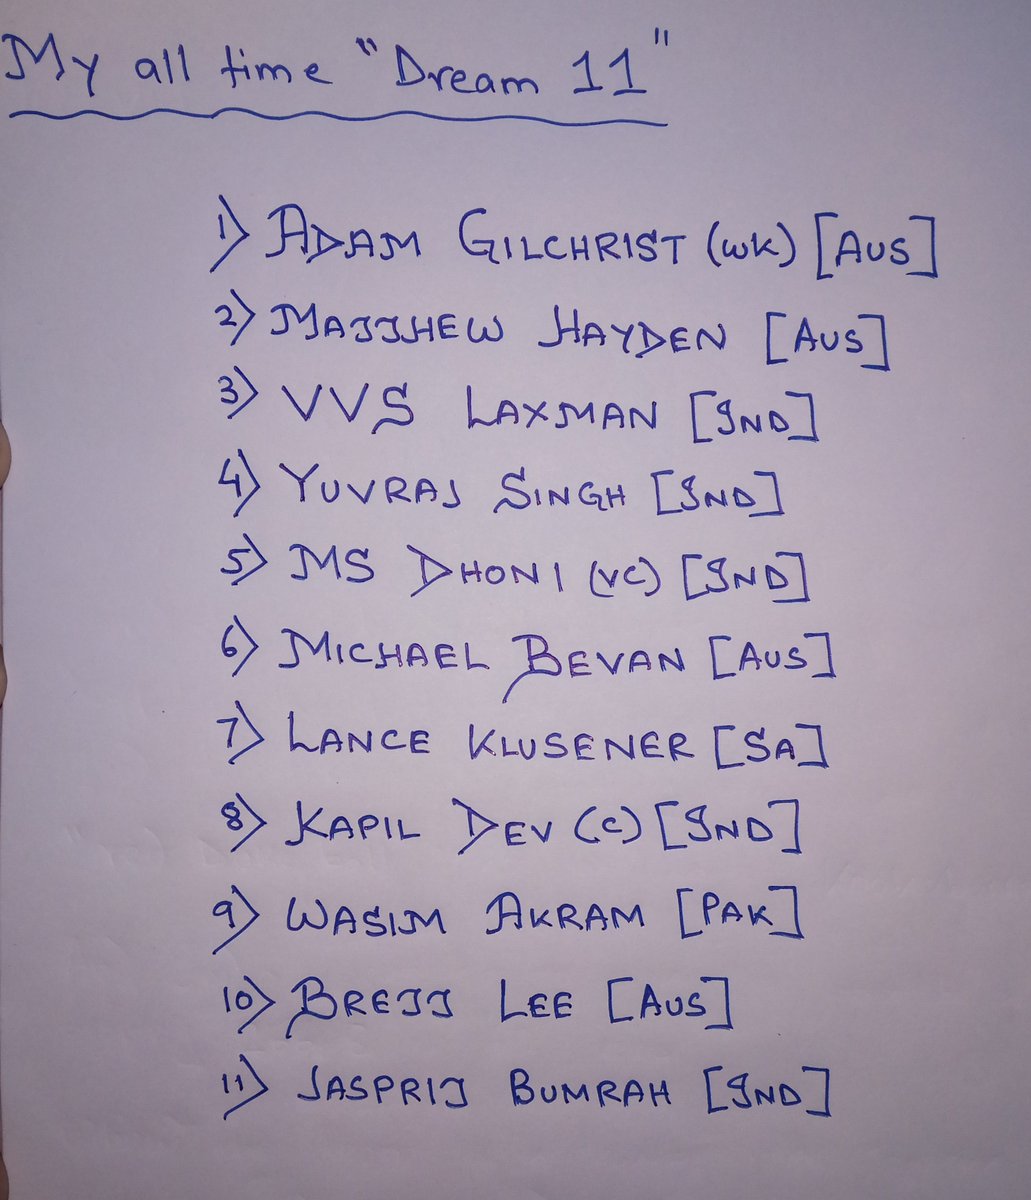 My all time "Dream 11"
1) ADAM GILCHRIST (wk) [AUS]
2) MATTHEW HAYDEN [AUS]
3) VVS LAXMAN [IND]
4) YUVRAJ SINGH [IND]
5) MS DHONI (VC) [IND]
6) MICHAEL BEVAN [AUS]
7) LANCE KLUSENER [SA]
8) KAPIL DEV (C) [IND]
9) WASIM AKRAM [PAK]
10) BRETT LEE [AUS]
11) JASPRIT BUMRAH [IND]